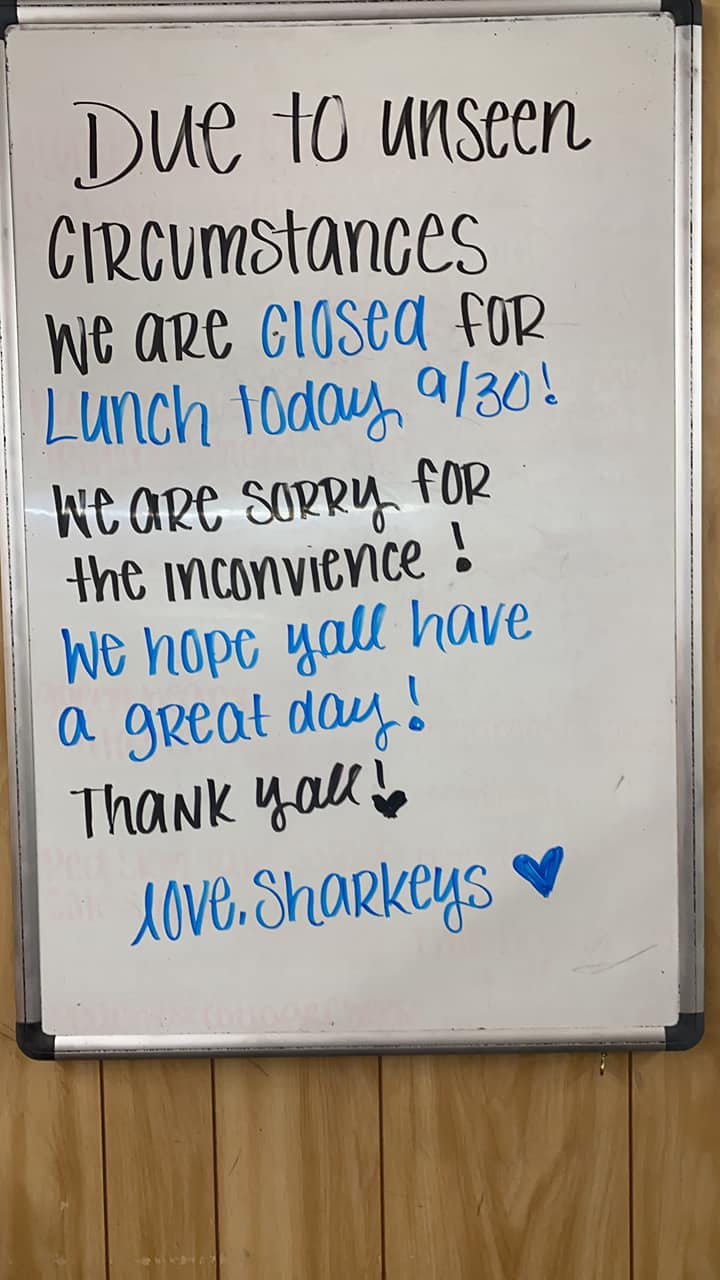 Due to unseen
circumstances
We are closed for
Lunch today, 9/30!
We are sorry for
the inconvience!
We hope yall have
a great day!
Thank yall!
love, Sharkeys